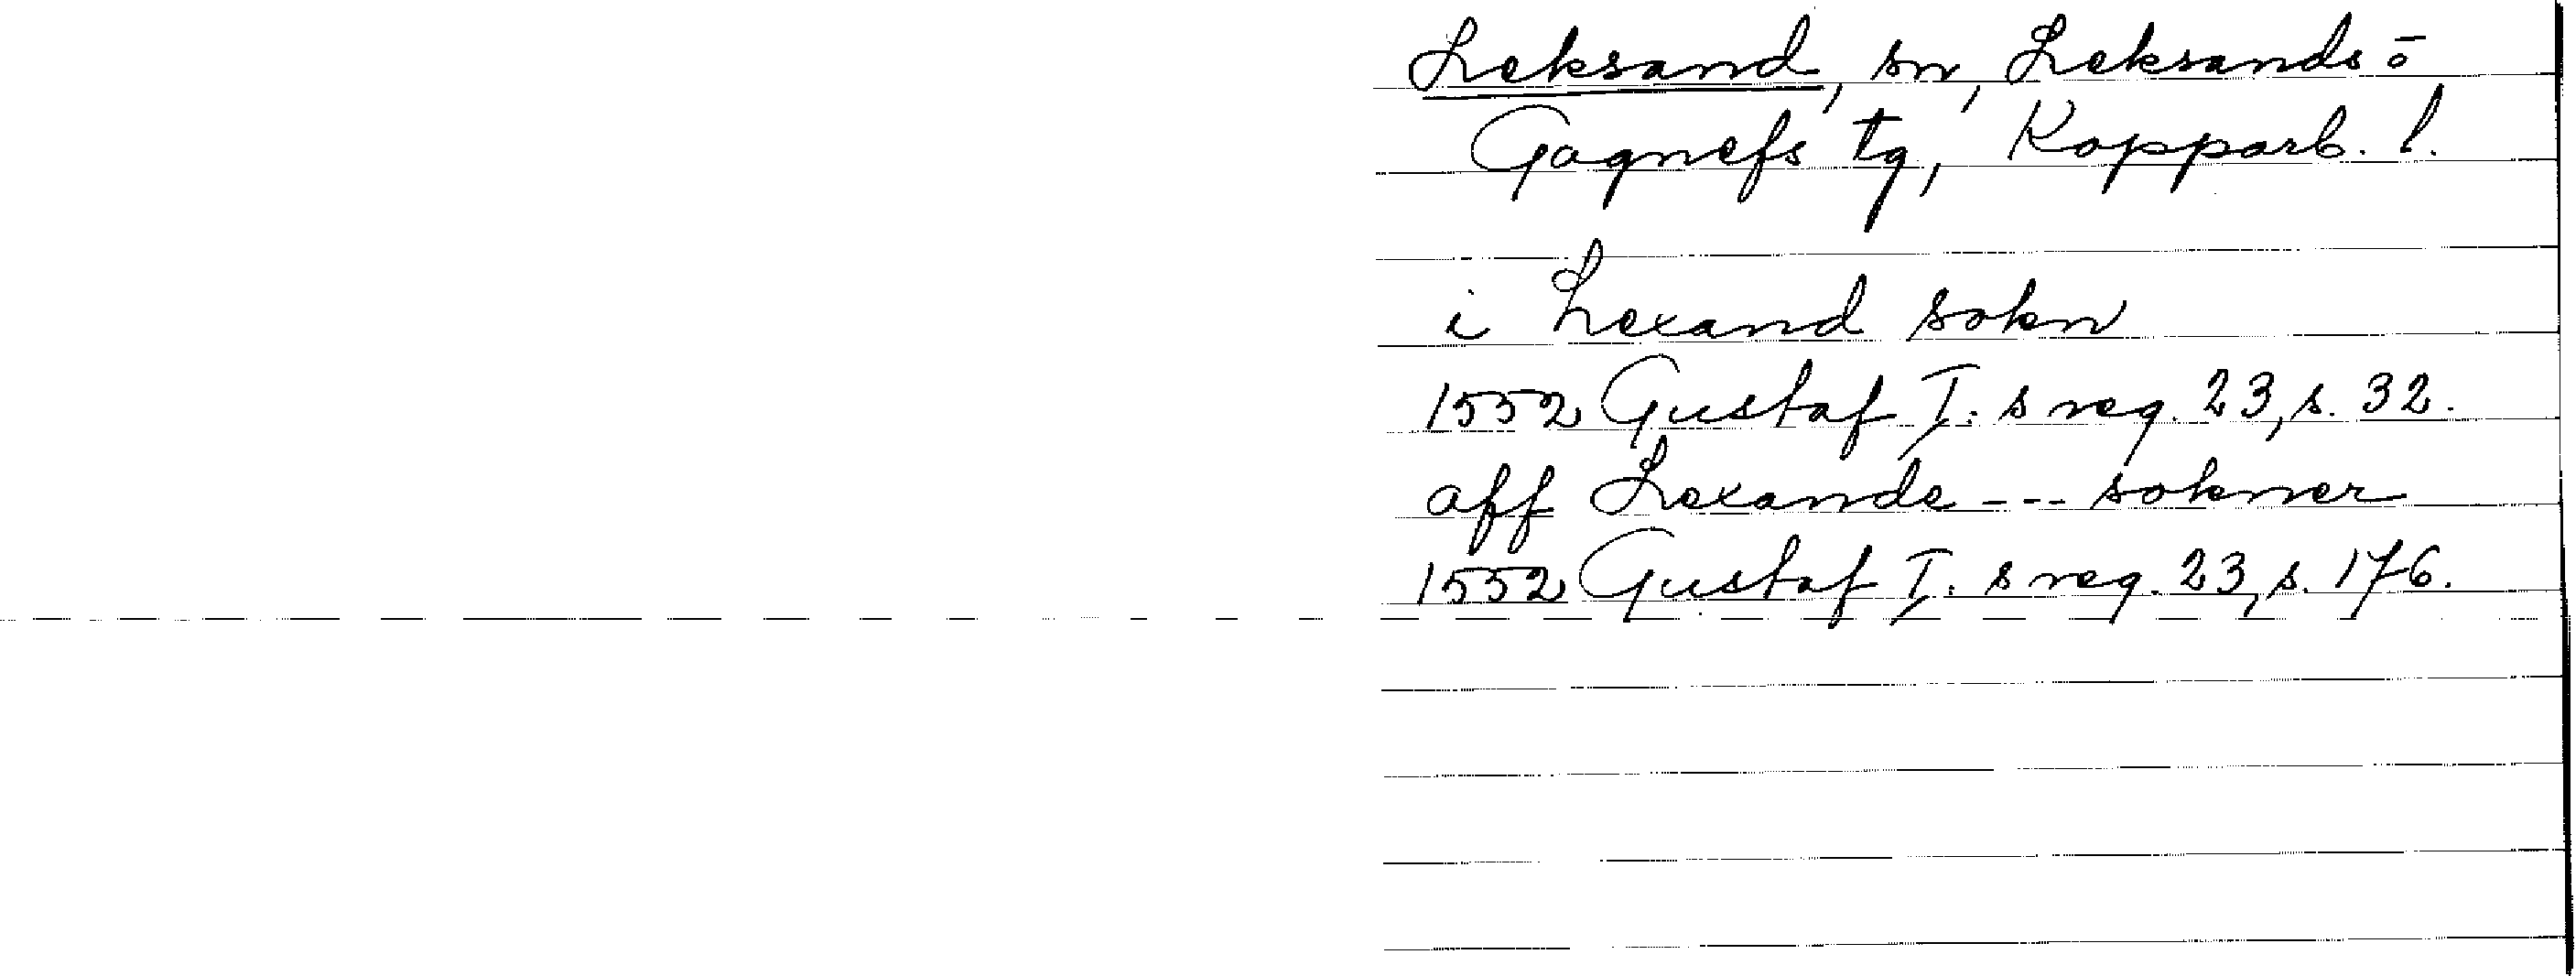 Leksand, sn, Leksands- o
Gagnefs tg, Kopparb. l.
i Lexand sokn
1552 Gustaf I:s reg. 23, s. 32.
aff Lexande --- sokner
1552 Gustaf I:s reg. 23, s. 176.